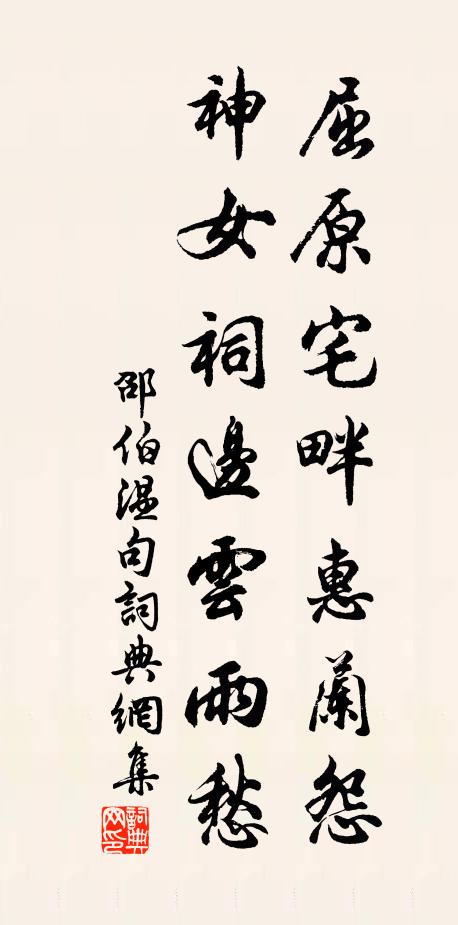 屈原宅畔惠蘭怨
神女祠邊雲雨愁
邵伯溫句詞典網集
詞典網印